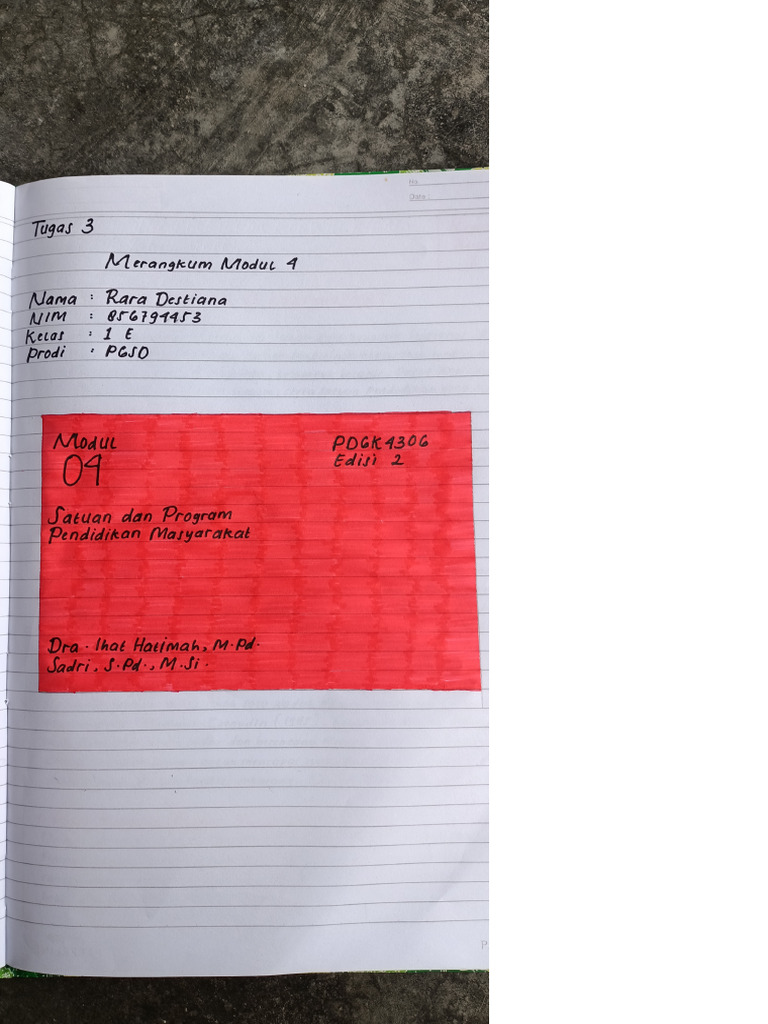 No
Date
Tugas 3
Merangkum Modul 4
Nama : Rara Destiana
NIM : 856794453
Kelas : 1 E
Prodi : PGSD
Modul
04
PDGK4306
Edisi 2
Satuan dan Program
Pendidikan Masyarakat
Dra. Ihat Hatimah, M.Pd.
Sadri, S.Pd., M.Si.